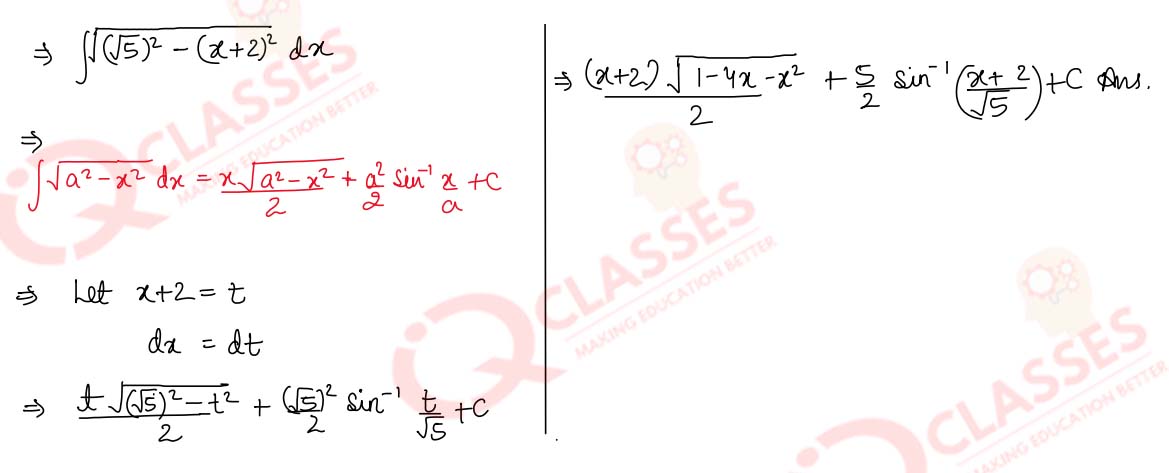 ⇒ ∫√((√5)² − (x+2)²) dx
⇒
∫√(a² − x²) dx = x√(a² − x²)/2 + a²/2 Sin⁻¹ x/a + C
⇒ Let x+2 = t
dx = dt
⇒ t√((√5)² − t²)/2 + (√5)²/2 Sin⁻¹ t/√5 + C
⇒ (x+2)√(1−4x−x²)/2 + 5/2 sin⁻¹((x+2)/√5) + C Ans.
CLASSES
MAKING EDUCATION BETTER
CLASSES
MAKING EDUCATION BETTER
CLASSES
MAKING EDUCATION BETTER